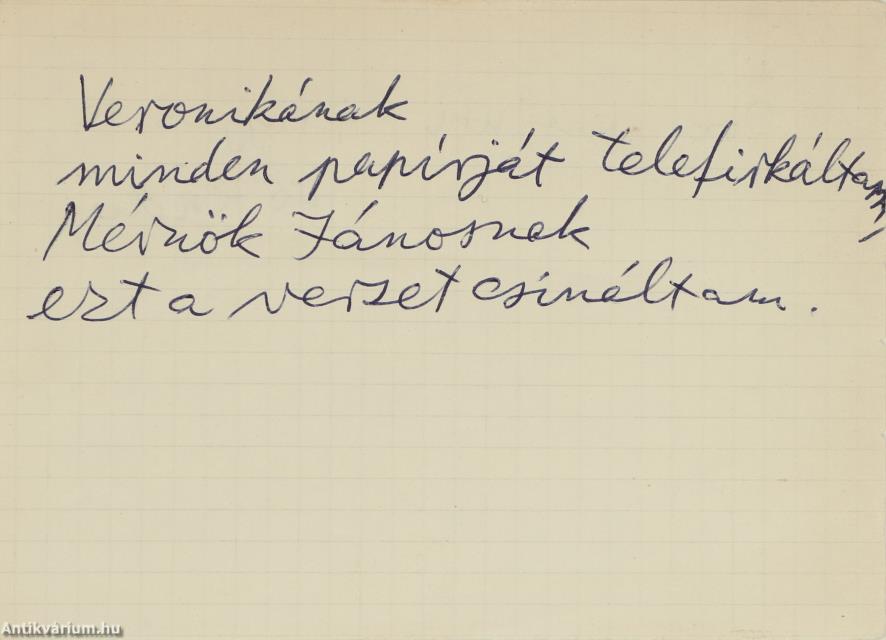 Veronikának
minden papírját telefirkáltam,
Mérnök Jánosnak
ezt a verset csináltam.
Antikvárium.hu